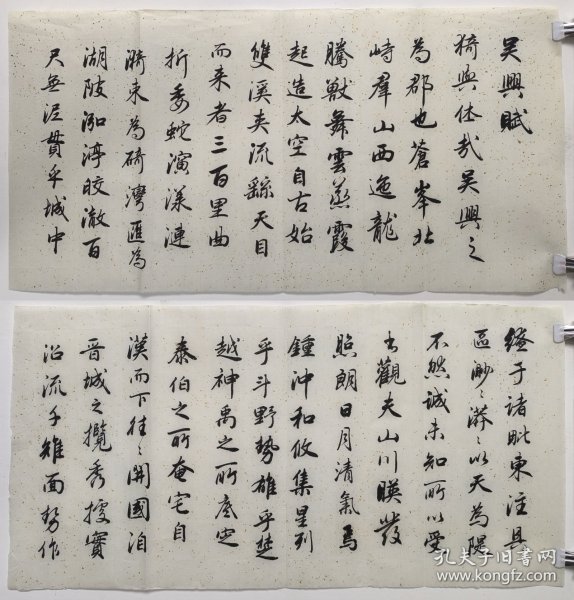 吳興賦
猗與休哉吳興之
為郡也蒼峯北
峙羣山西迤龍
騰獸舞雲蒸霞
起造太空自古始
雙溪夾流繇天目
而來者三百里曲
折委蛇演漾漣
漪束為碕灣匯為
湖陂泓渟皎澈百
尺無泥貫乎城中
繚于諸毗東注具
區渺〻漭〻以天為隄
不然誠未知所以受
之觀夫山川暎發
照朗日月清氣焉
鍾沖和攸集星列
乎斗野勢雄乎楚
越神禹之所底定
泰伯之所奄宅自
漢而下往〻開國洎
晉城之攬秀據實
沿流千雉面勢作
孔夫子旧书网
www.kongfz.com